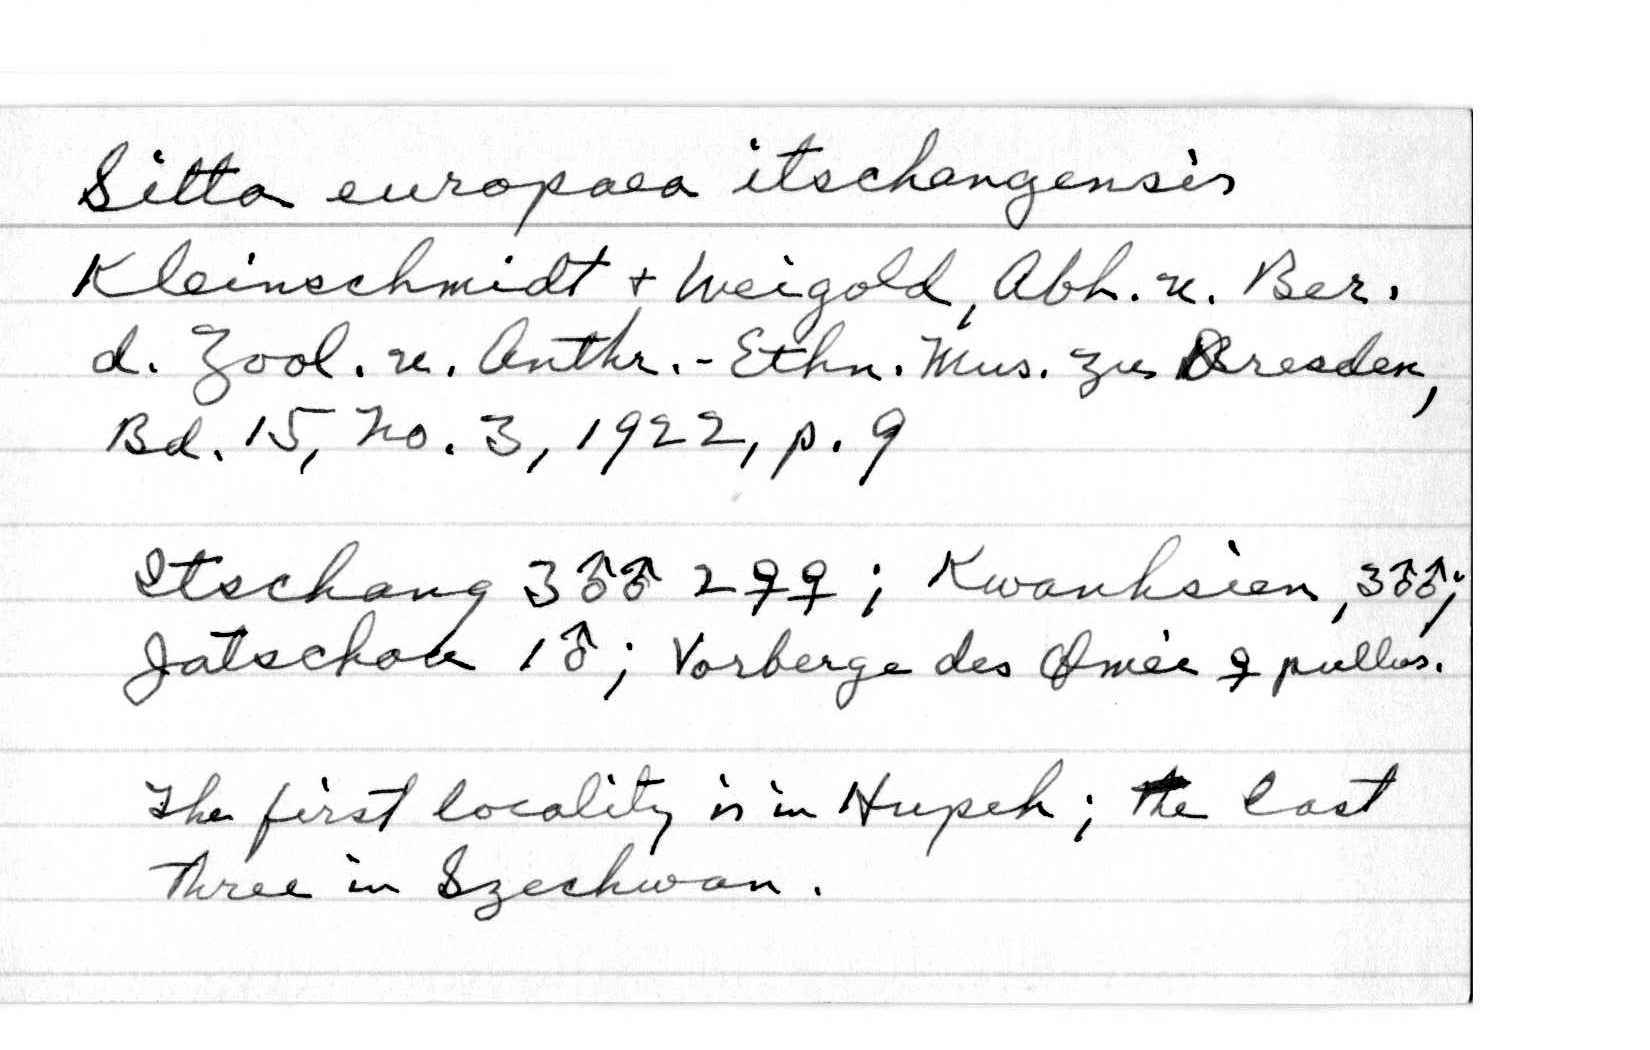 Sitta europaea itschangensis
Kleinschmidt + Weigold, Abh. u. Ber.
d. Zool. u. Anthr.-Ethn. Mus. zu Dresden,
Bd. 15, No. 3, 1922, p. 9
Itschang 3♂♂ 2♀♀; Kwanhsien, 3♂♂;
Jatschou 1♂; Vorberge des Omèi ♀ pullus.
The first locality is in Hupeh; the last
three in Szechwan.